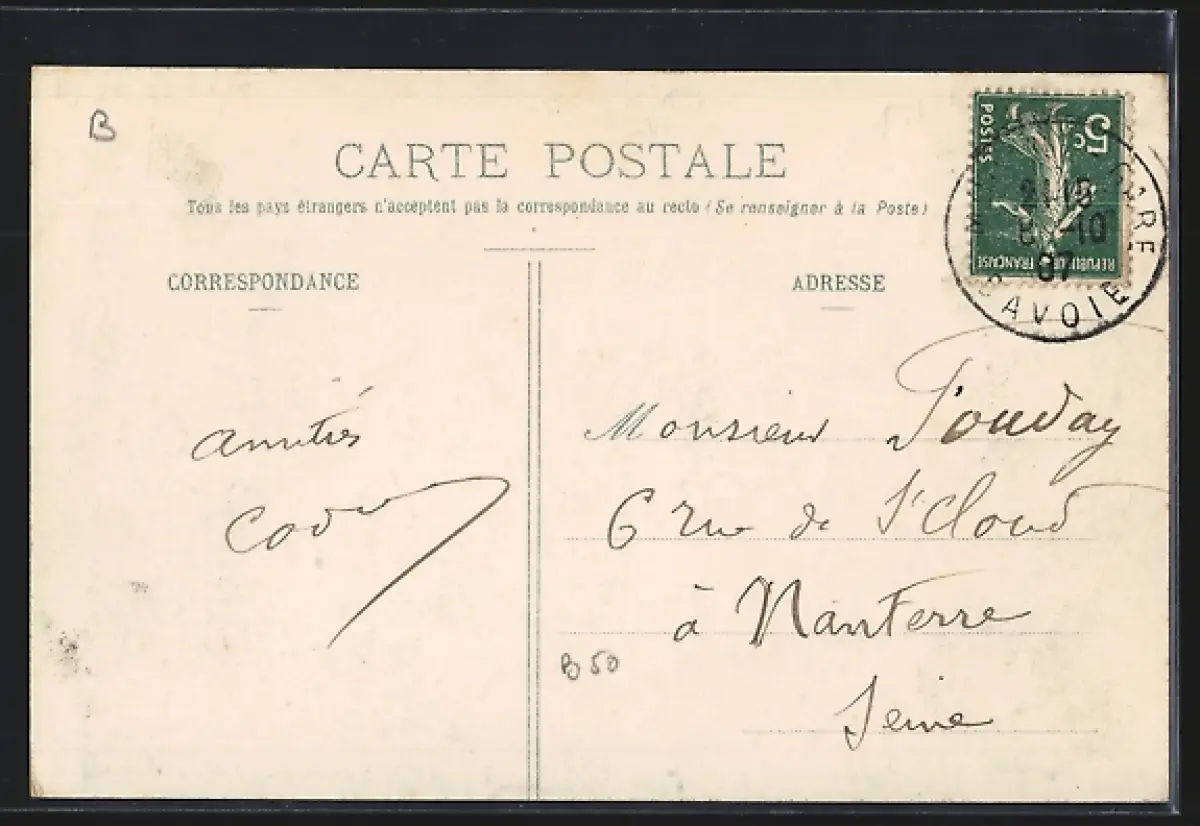 B
CARTE POSTALE
Tous les pays étrangers n'acceptent pas la correspondance au recto (Se renseigner à la Poste)
CORRESPONDANCE
ADRESSE
5c
POSTES
REPUBLIQUE FRANÇAISE
10
07
SAVOIE
amitiés
Monsieur
6 rue de St Cloud
à Nanterre
Seine
B 50